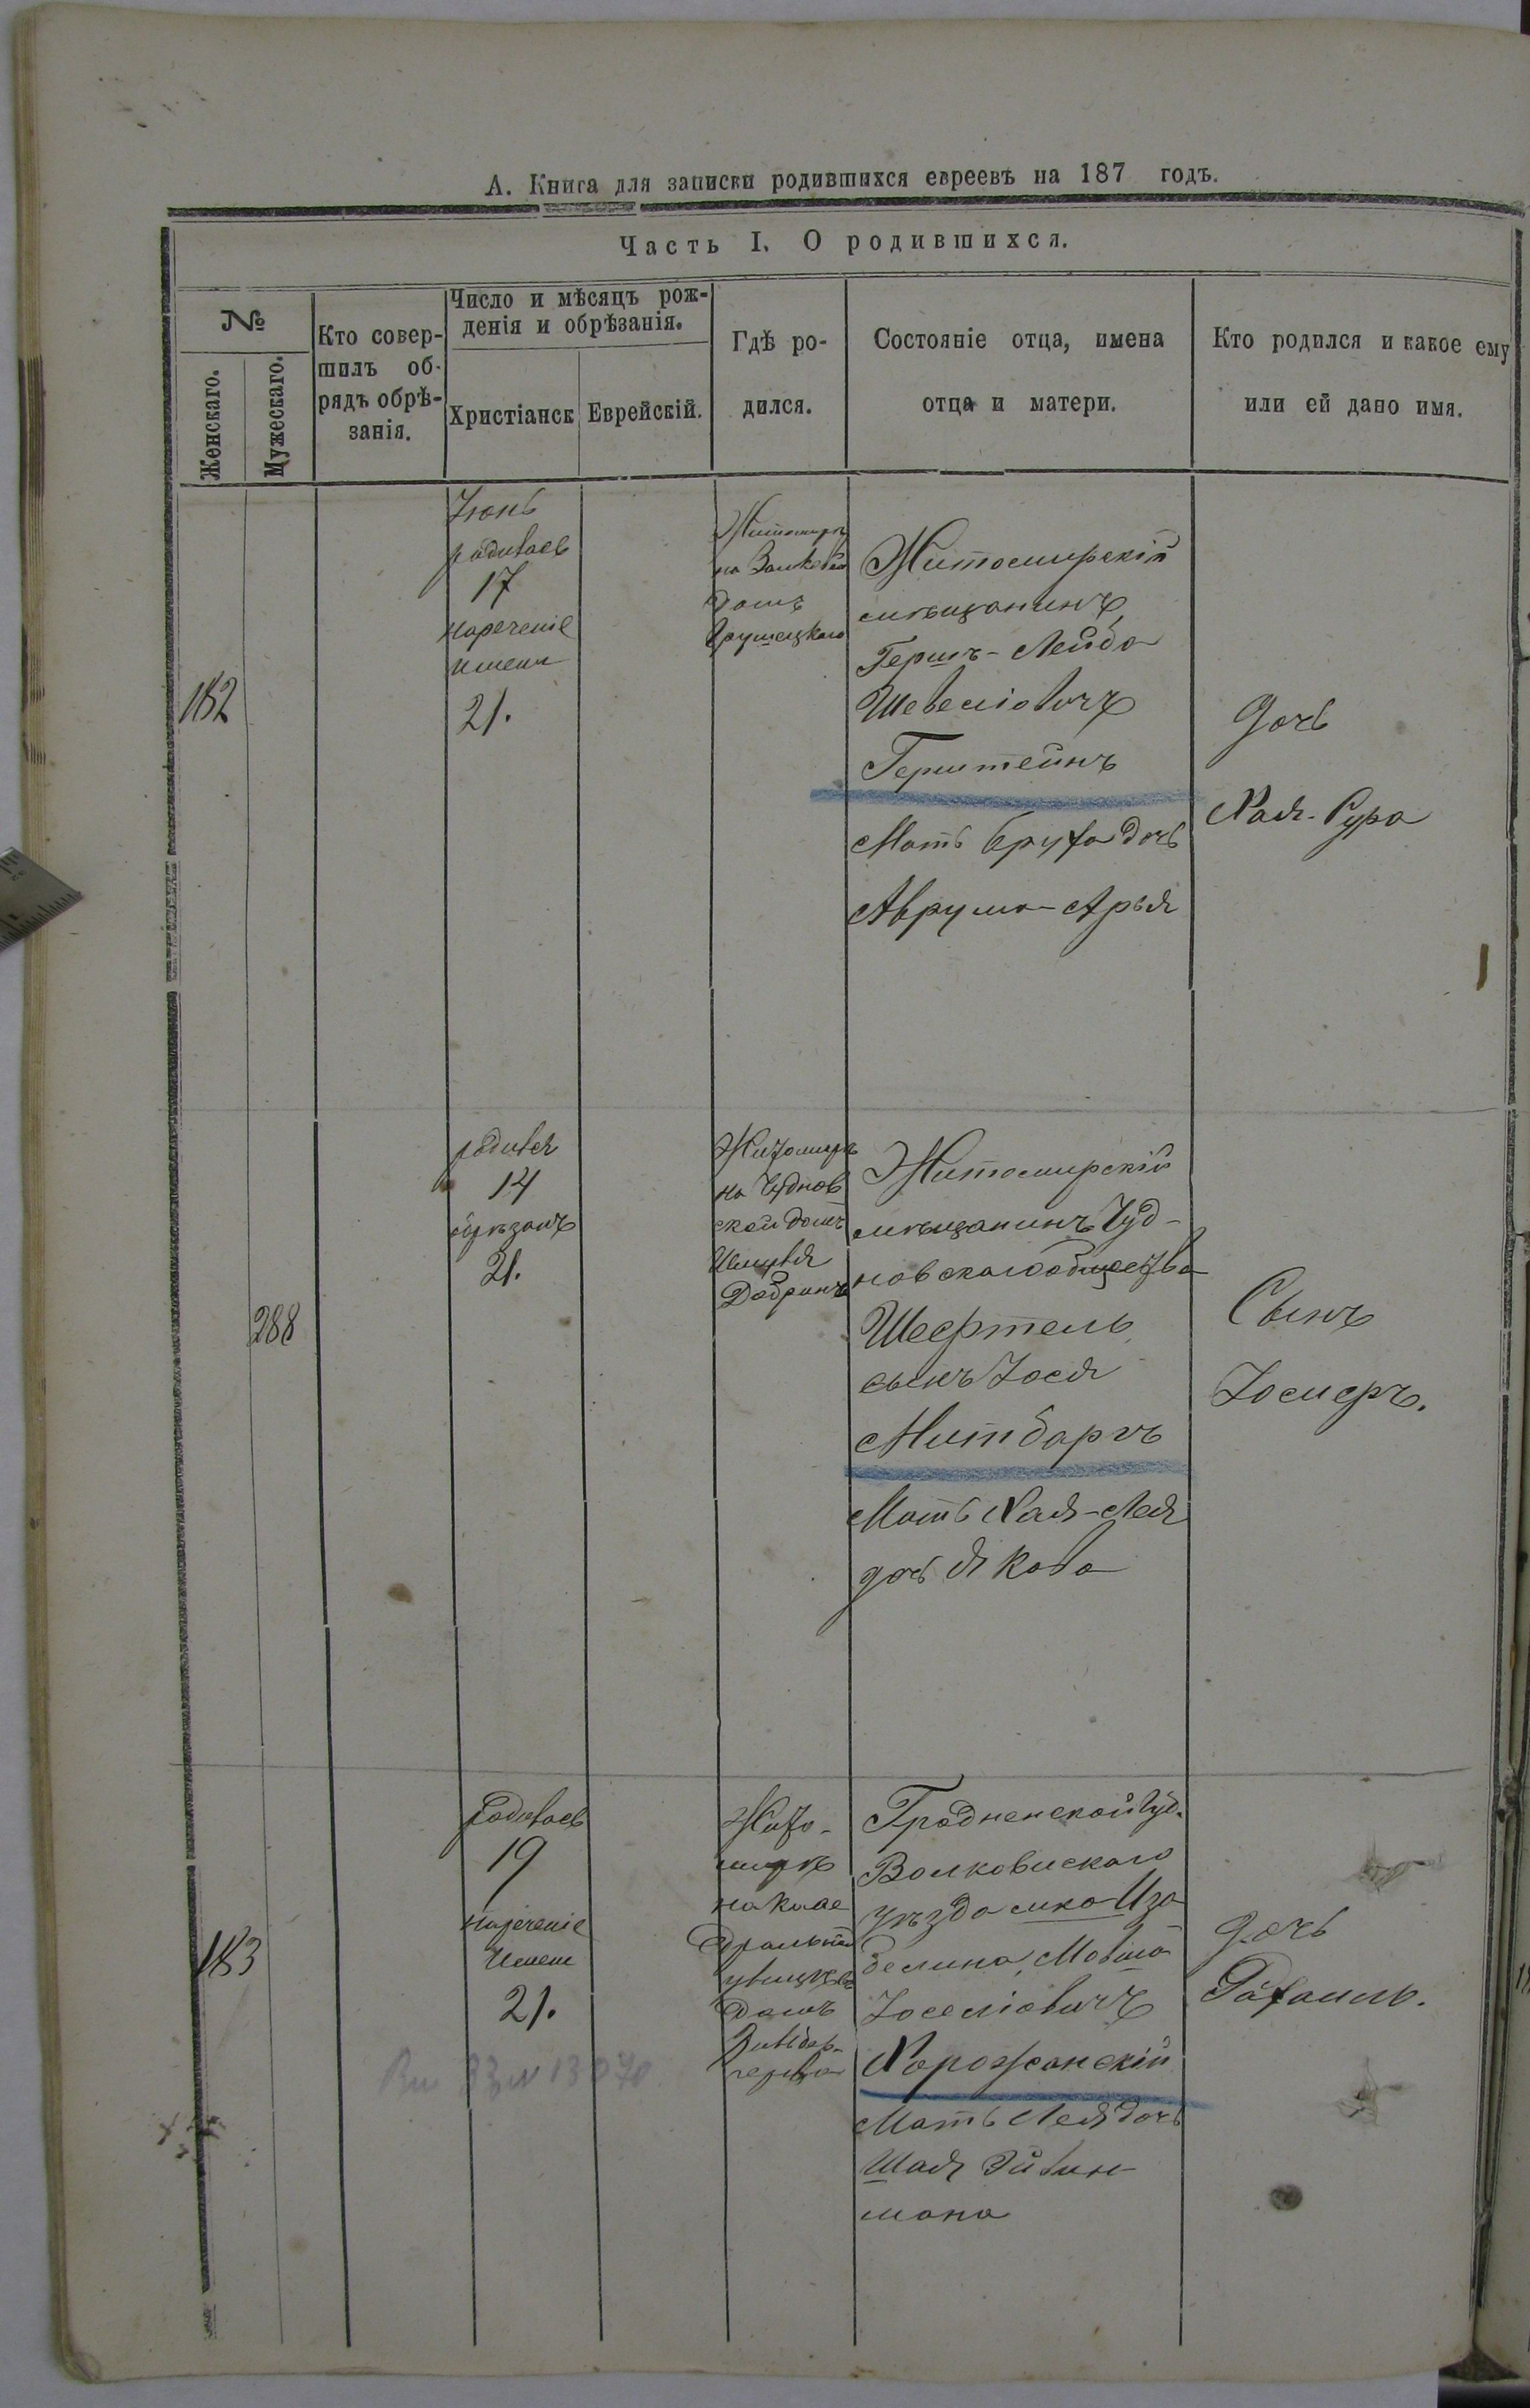 А. Книга для записки родившихся евреевъ на 187 годъ.
Часть I. О родившихся.
№
Женскаго.
Мужескаго.
Кто совер-
шилъ об-
рядъ обрѣ-
занія.
Число и мѣсяцъ рож-
денія и обрѣзанія.
Христіанск
Еврейскій.
Гдѣ ро-
дился.
Состояніе отца, имена
отца и матери.
Кто родился и какое ему
или ей дано имя.
182
Іюнь
родилась
17
нареченіе
имени
21.
Житомиръ
на
домъ
Грушецкаго
Житомирскій
мѣщанинъ
Гершъ-Лейба
Шевеліовичъ
Герштейнъ
Мать Бруха дочь
Аврума-Арья
Дочь
Хая-Сура
288
родился
14
обрѣзанъ
21.
Житомиръ
на Чуднов
ской домъ
Шмуля
Житомирскій
мѣщанинъ Чуд-
новскаго общества
Шефтель
сынъ Іося
Митбаргъ
Мать Хая-Лея
дочь Якова
Сынъ
Іосифъ.
183
Родилась
19
нареченіе
имени
21.
Жито-
миръ
домъ
Гродненской губ.
Волковискаго
уѣзда мка Иза
белина, Мовша
Іоселіовичъ
Хорожанскій
Мать Лея дочь
Шая
мана
Дочь
Рахиль.